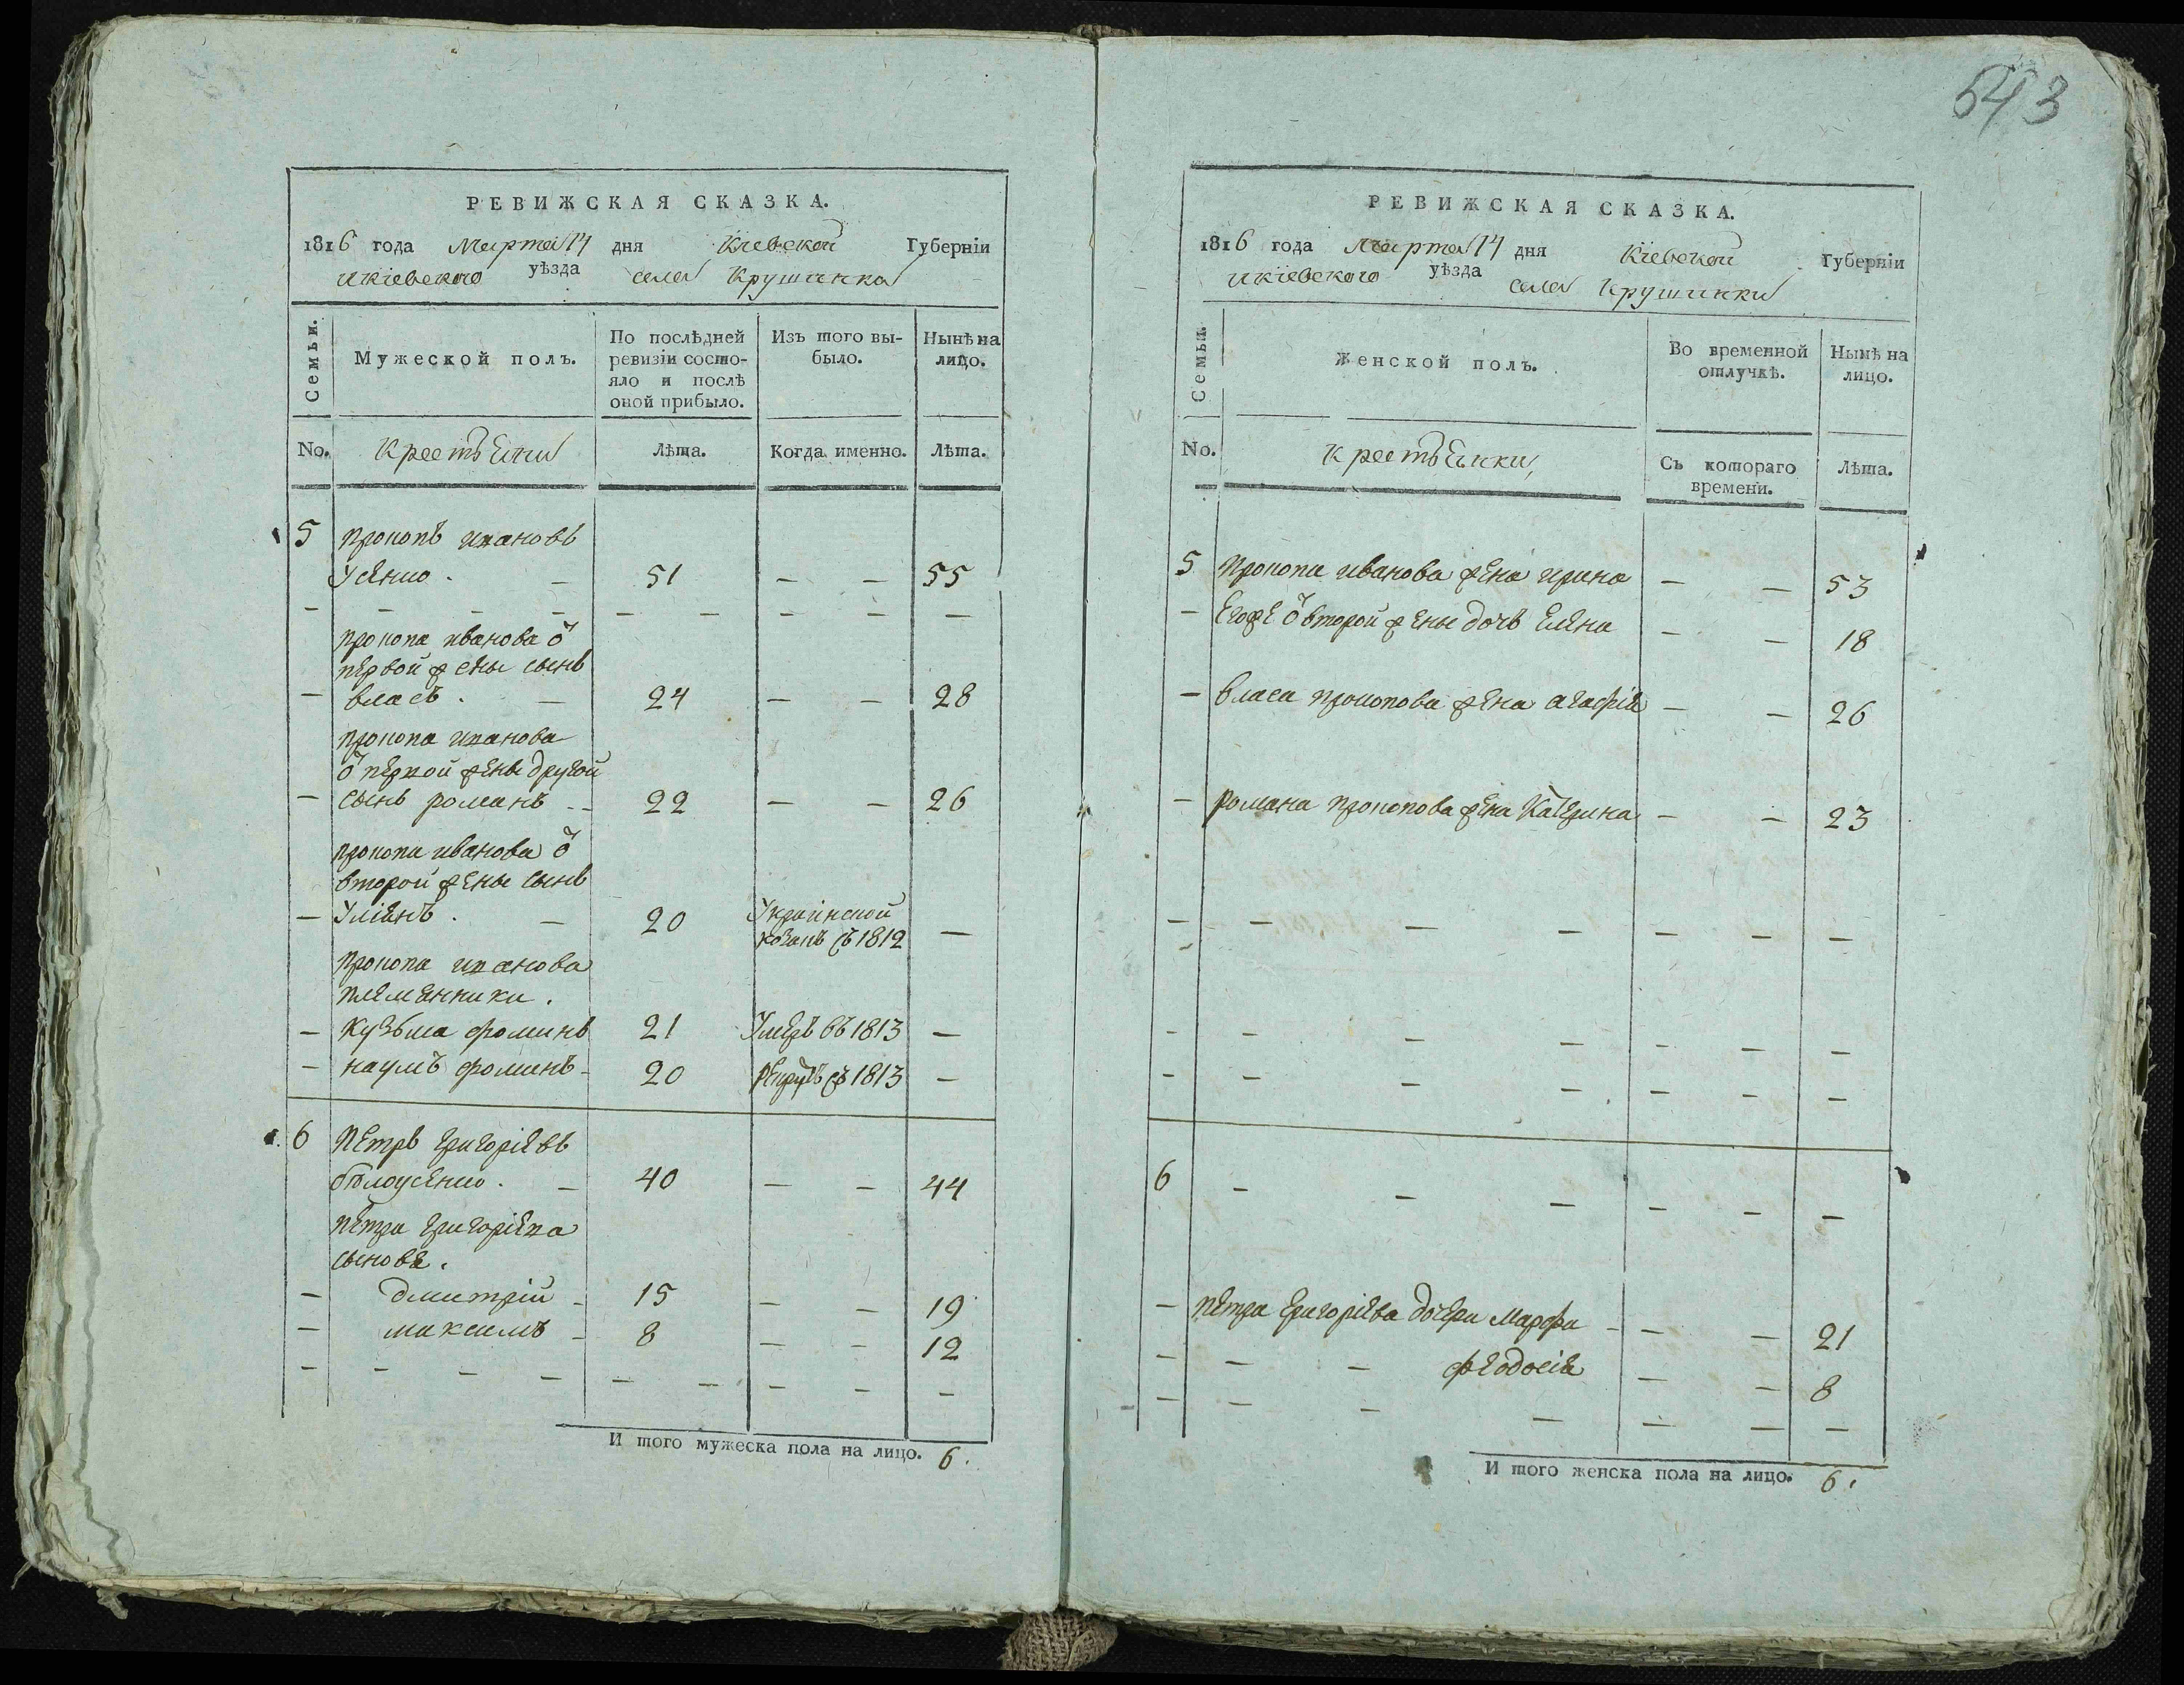 543
РЕВИЖСКАЯ СКАЗКА.
1816 года Марта 14 дня Кіевской Губерніи
Икіевского уѣзда села Крушинка
Семьи.
Мужеской полъ.
По послѣдней ревизіи состо-
яло и послѣ оной прибыло.
Изъ того вы-
было.
Нынѣ на лицо.
No. Крестьяни Лѣта. Когда именно. Лѣта.
5 прокопъ ивановъ
Усенко. — 51 — — 55
— — — — — — — — —
прокопа иванова ѿ
первой жены сынъ
— власъ. — 24 — — 28
прокопа иванова
ѿ первой жены другой
— сынъ романъ - - 22 — — 26
прокопа иванова ѿ
второй жены сынъ
— Уліянъ. — 20 Украинской
козакъ съ 1812 —
прокопа иванова
племянники.
— Кузьма фоминъ 21 Умеръ въ 1813 —
— наумъ фоминъ - 20 рекрутъ съ 1813 —
6 петръ григоріевъ
бѣлоусенко. — 40 — — 44
петра григоріева
сыновя.
— дмитрій - 15 — — 19
— максимъ - 8 — — 12
— — — — — — — — —
И того мужеска пола на лицо. 6.
РЕВИЖСКАЯ СКАЗКА.
1816 года Марта 14 дня Кіевской Губерніи
Икіевского уѣзда села Крушинки
Семьи.
Женской полъ.
Во временной
отлучкѣ.
Нынѣ на
лицо.
No. Крестьянки, Съ котораго
времени. Лѣта.
5 Прокопа иванова жена ирина — — 53
— Егоже ѿ второй жены дочь Елена — — 18
— власа прокопова жена агафія — — 26
— романа прокопова жена Катерина — — 23
— — — — — — —
— — — — — — —
— — — — — — —
6 — — — — — —
— петра григоріева дочери Марфа - — — 21
— — — феодосія — — 8
— — — — — — —
И того женска пола на лицо. 6.